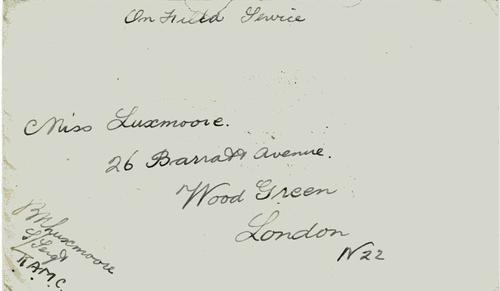 On Field Service
Miss Luxmoore.
26 Barratt Avenue.
Wood Green
London
N22
Luxmoore
S/Sergt
R.A.M.C.